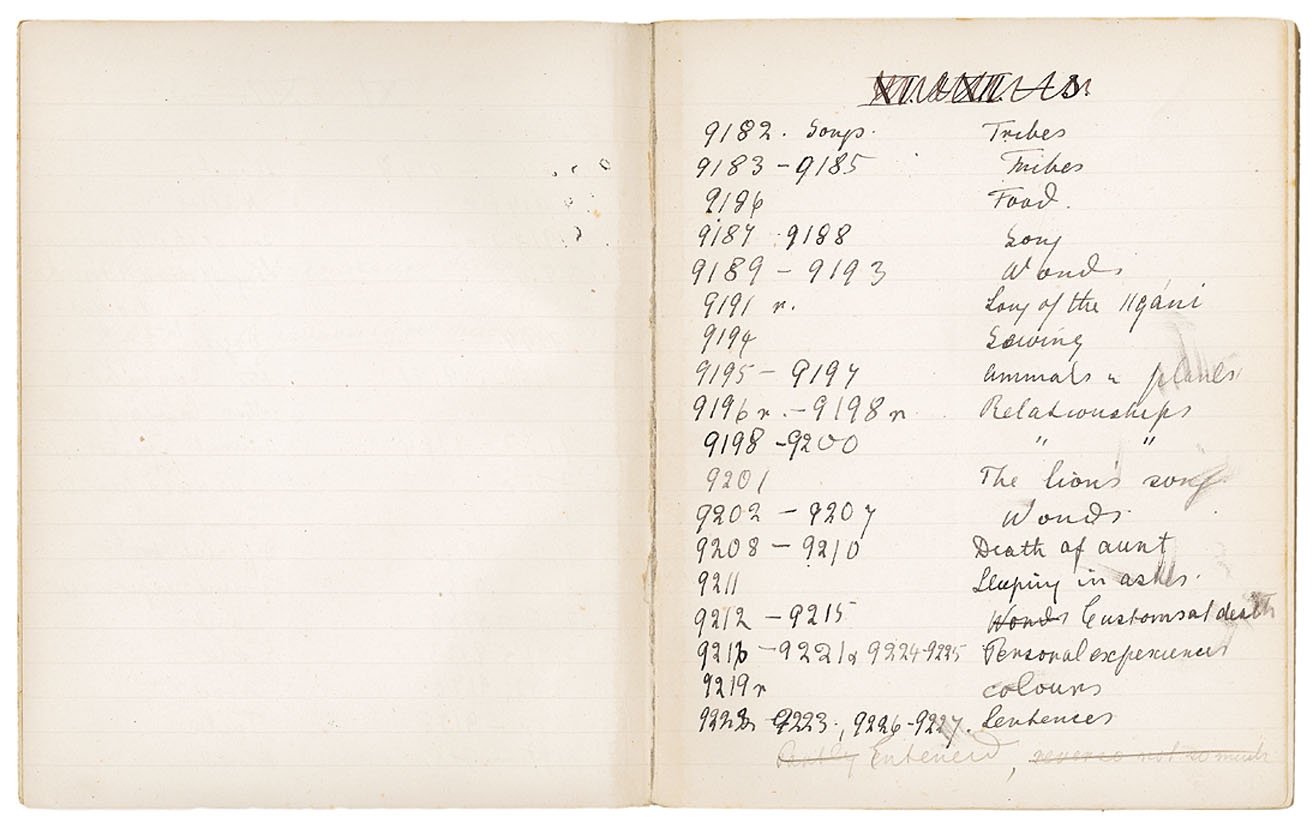 9182. Songs. Tribes
9183 - 9185 Tribes
9186 Food.
9187 9188 Song
9189 - 9193 Words
9191 r. Song of the ǁgáni
9194 Sewing
9195 - 9197 Animals & plants
9196 r. - 9198 r. Relationships
9198 - 9200 " "
9201 The lion's song
9202 - 9207 Words
9208 - 9210 Death of aunt
9211 Sleeping in ashes.
9212 - 9215 Words Customs at death
9216 - 9221 & 9224-9225 Personal experiences
9219 r colours
9222 - 9223, 9226-9227. Sentences
Partly Entered, reverse not so much